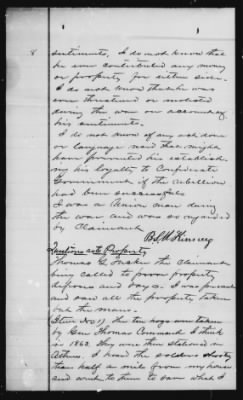 8
sentiments, I do not know that
he ever contributed any money
or property for either side.
I do not know that he was
ever threatened or molested
during the war on account of
his sentiments.
I do not know of any act done
or language used that might
have prevented his establish
ing his loyalty to Confederate
Government if the rebellion
had been successful.
I was a Union man during
the war and was so regarded
by Claimant
Questions as to Property
Thomas G. the Claimant
being called to prove property
deposes and says. I was present
and saw all the property taken
but the mare.
Item No 1) The ten hogs were taken by
by Gen Thomas Command I think
in 1862. They were then stationed in
I heard the soldiers shooting
than half a mile from my house
and went to them to saw what I